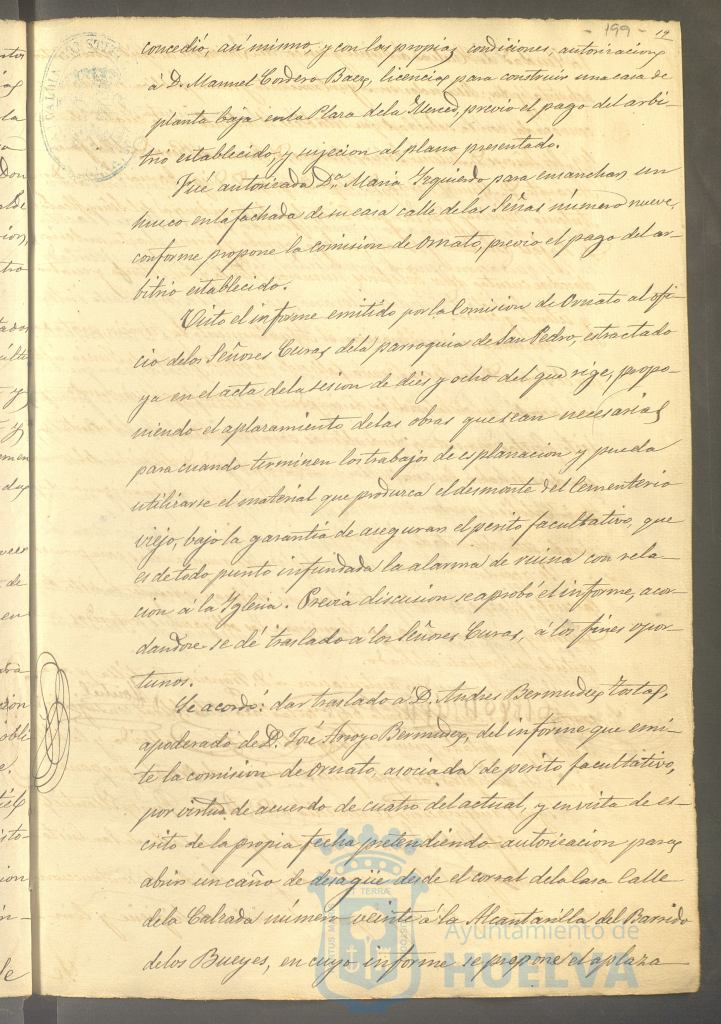 - 199 -
concedió, así mismo, y con las propias condiciones, autorizacion
á D. Manuel Cordero Baez, licencia para construir una casa de
planta baja en la Plaza de la Merced, previo el pago del arbi-
trio establecido, y sujecion al plano presentado.
Fué autorizada Dª Maria Izquierdo para ensanchar un
hueco en la fachada de su casa calle de las Señas número nueve,
conforme propone la comision de Ornato, previo el pago del ar-
bitrio establecido.
Visto el informe emitido por la Comision de Ornato al ofi-
cio de los Señores Curas de la parroquia de San Pedro, estractado
ya en el acta de la sesion de dies y ocho del que rige, propo-
niendo el aplazamiento de las obras que sean necesarias
para cuando terminen los trabajos de esplanacion y pueda
utilizarse el material que produzca el desmonte del Cementerio
viejo, bajo la garantia de asegurar el perito facultativo, que
es de todo punto infundada la alarma de ruina con rela-
cion á la Iglesia. Previa discusion se aprobó el informe, acor-
dandose se dé traslado á los Señores Curas, á los fines opor-
tunos.
Se acordó: dar traslado á D. Andres Bermudez Tostas,
apoderado de D. José Arroyo Bermudez, del informe que emi-
te la comision de Ornato, asociada de perito facultativo,
por virtud de acuerdo de cuatro del actual, y en vista de es-
crito de la propia fecha pretendiendo autorizacion para
abrir un caño de desagüe desde el corral de la Casa Calle
de la Calzada número veinte á la Alcantarilla del Barrido
de los Bueyes, en cuyo informe se propone el aplaza
Ayuntamiento de
HUELVA